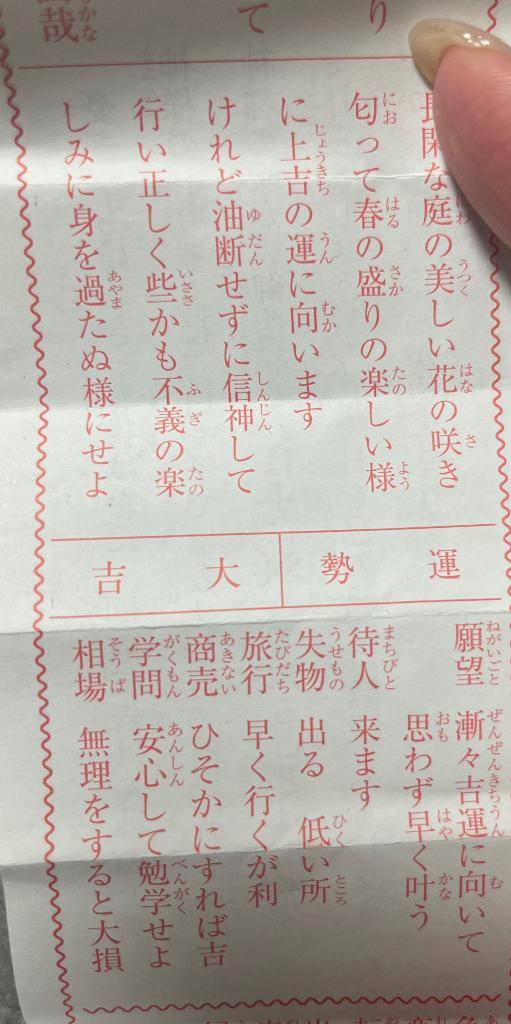 り
て
哉
長閑な庭の美しい花の咲き
匂って春の盛りの楽しい様
に上吉の運に向います
けれど油断せずに信神して
行い正しく些かも不義の楽
しみに身を過たぬ様にせよ
運勢 大吉
願望 漸々吉運に向いて
思わず早く叶う
待人 来ます
失物 出る 低い所
旅行 早く行くが利
商売 ひそかにすれば吉
学問 安心して勉学せよ
相場 無理をすると大損